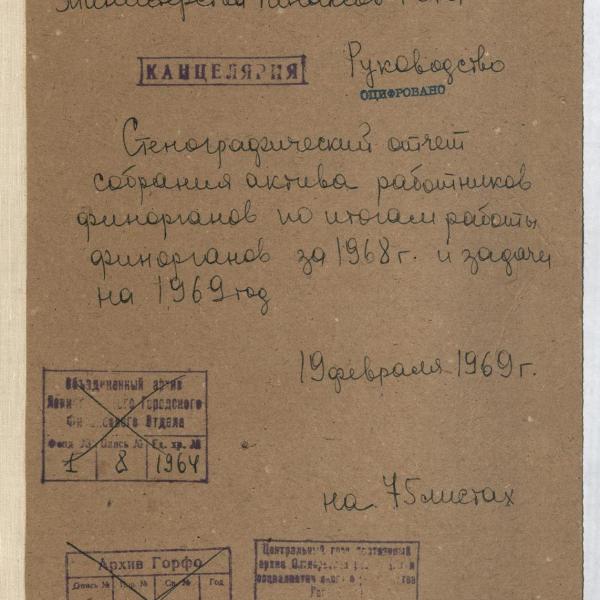 Министерства финансов
КАНЦЕЛЯРИЯ
Руководство
ОЦИФРОВАНО
Стенографический отчет
собрания актива работников
финорганов по итогам работы
финорганов за 1968 г. и задачи
на 1969 год
19 февраля 1969 г.
Объединенный архив
Городского
Отдела
Фонд № Опись № Ед. хр. №
1 8 1964
на 75 листах
Архив Горфо
Опись № Пор. № Св. № Год
Центральный
архив